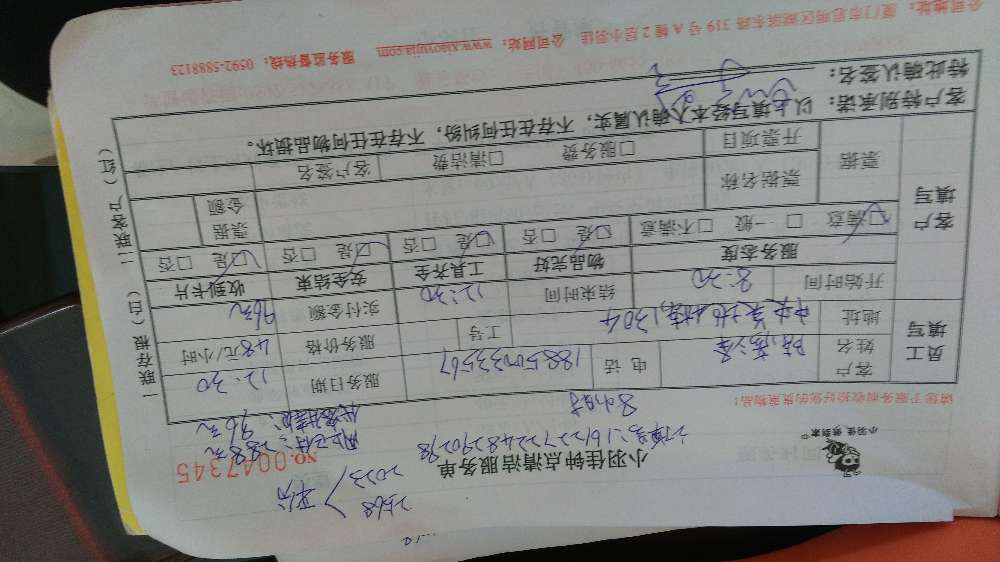 小羽佳 绣到家
小羽佳钟点清洁服务单
NO.0047345
2568
2023
平分
订单号:1612272248290298
8小时
网上已付:288元
代客结款:96元
请您于服务前收拾好您的贵重物品!
员工填写
客户姓名
电话
18850033567
服务日期
12.30
地址
1304
工号
服务价格
48元/小时
开始时间
8:30
结束时间
12:30
实付金额
96元
客户填写
服务态度
物品完好
工具齐全
安全结束
收到卡片
☑满意 □ 一般 □不满意
☑是 □ 否
☑是 □ 否
☑是 □ 否
☑是 □ 否
票据
票据名称
票据金额
开票项目
□服务费 □清洁费
客户签名
一联存根(白) 二联客户(红)
客户特别承诺: 以上填写经本人确认属实,不存在任何纠纷,不存在任何物品损坏。
特此确认签名:
公司地址:厦门市思明区湖滨东路 319 号 A 幢 2 层小羽佳 公司网站:www.xiaoyujia.com 服务监督热线:0592-5888123